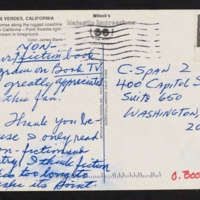 S VERDES, CALIFORNIA
Mitock's
omes along the rugged coastline
n California – Point Vicente light-
resent in foreground.
Color: James Blank
NON-
fiction book
program on Book TV
greatly appreciated
this fan.
Thank you be-
use I only read
on-fiction and
try! I think fiction
too long to
ake its point.
C-Span 2
400 Capitol S
Suite 650
Washington
20
O. Boo